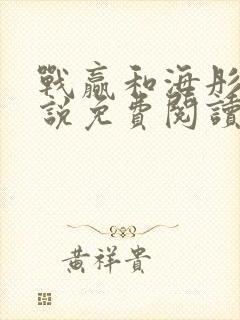 戰贏和海彤
說免費閱讀
黃祥貴